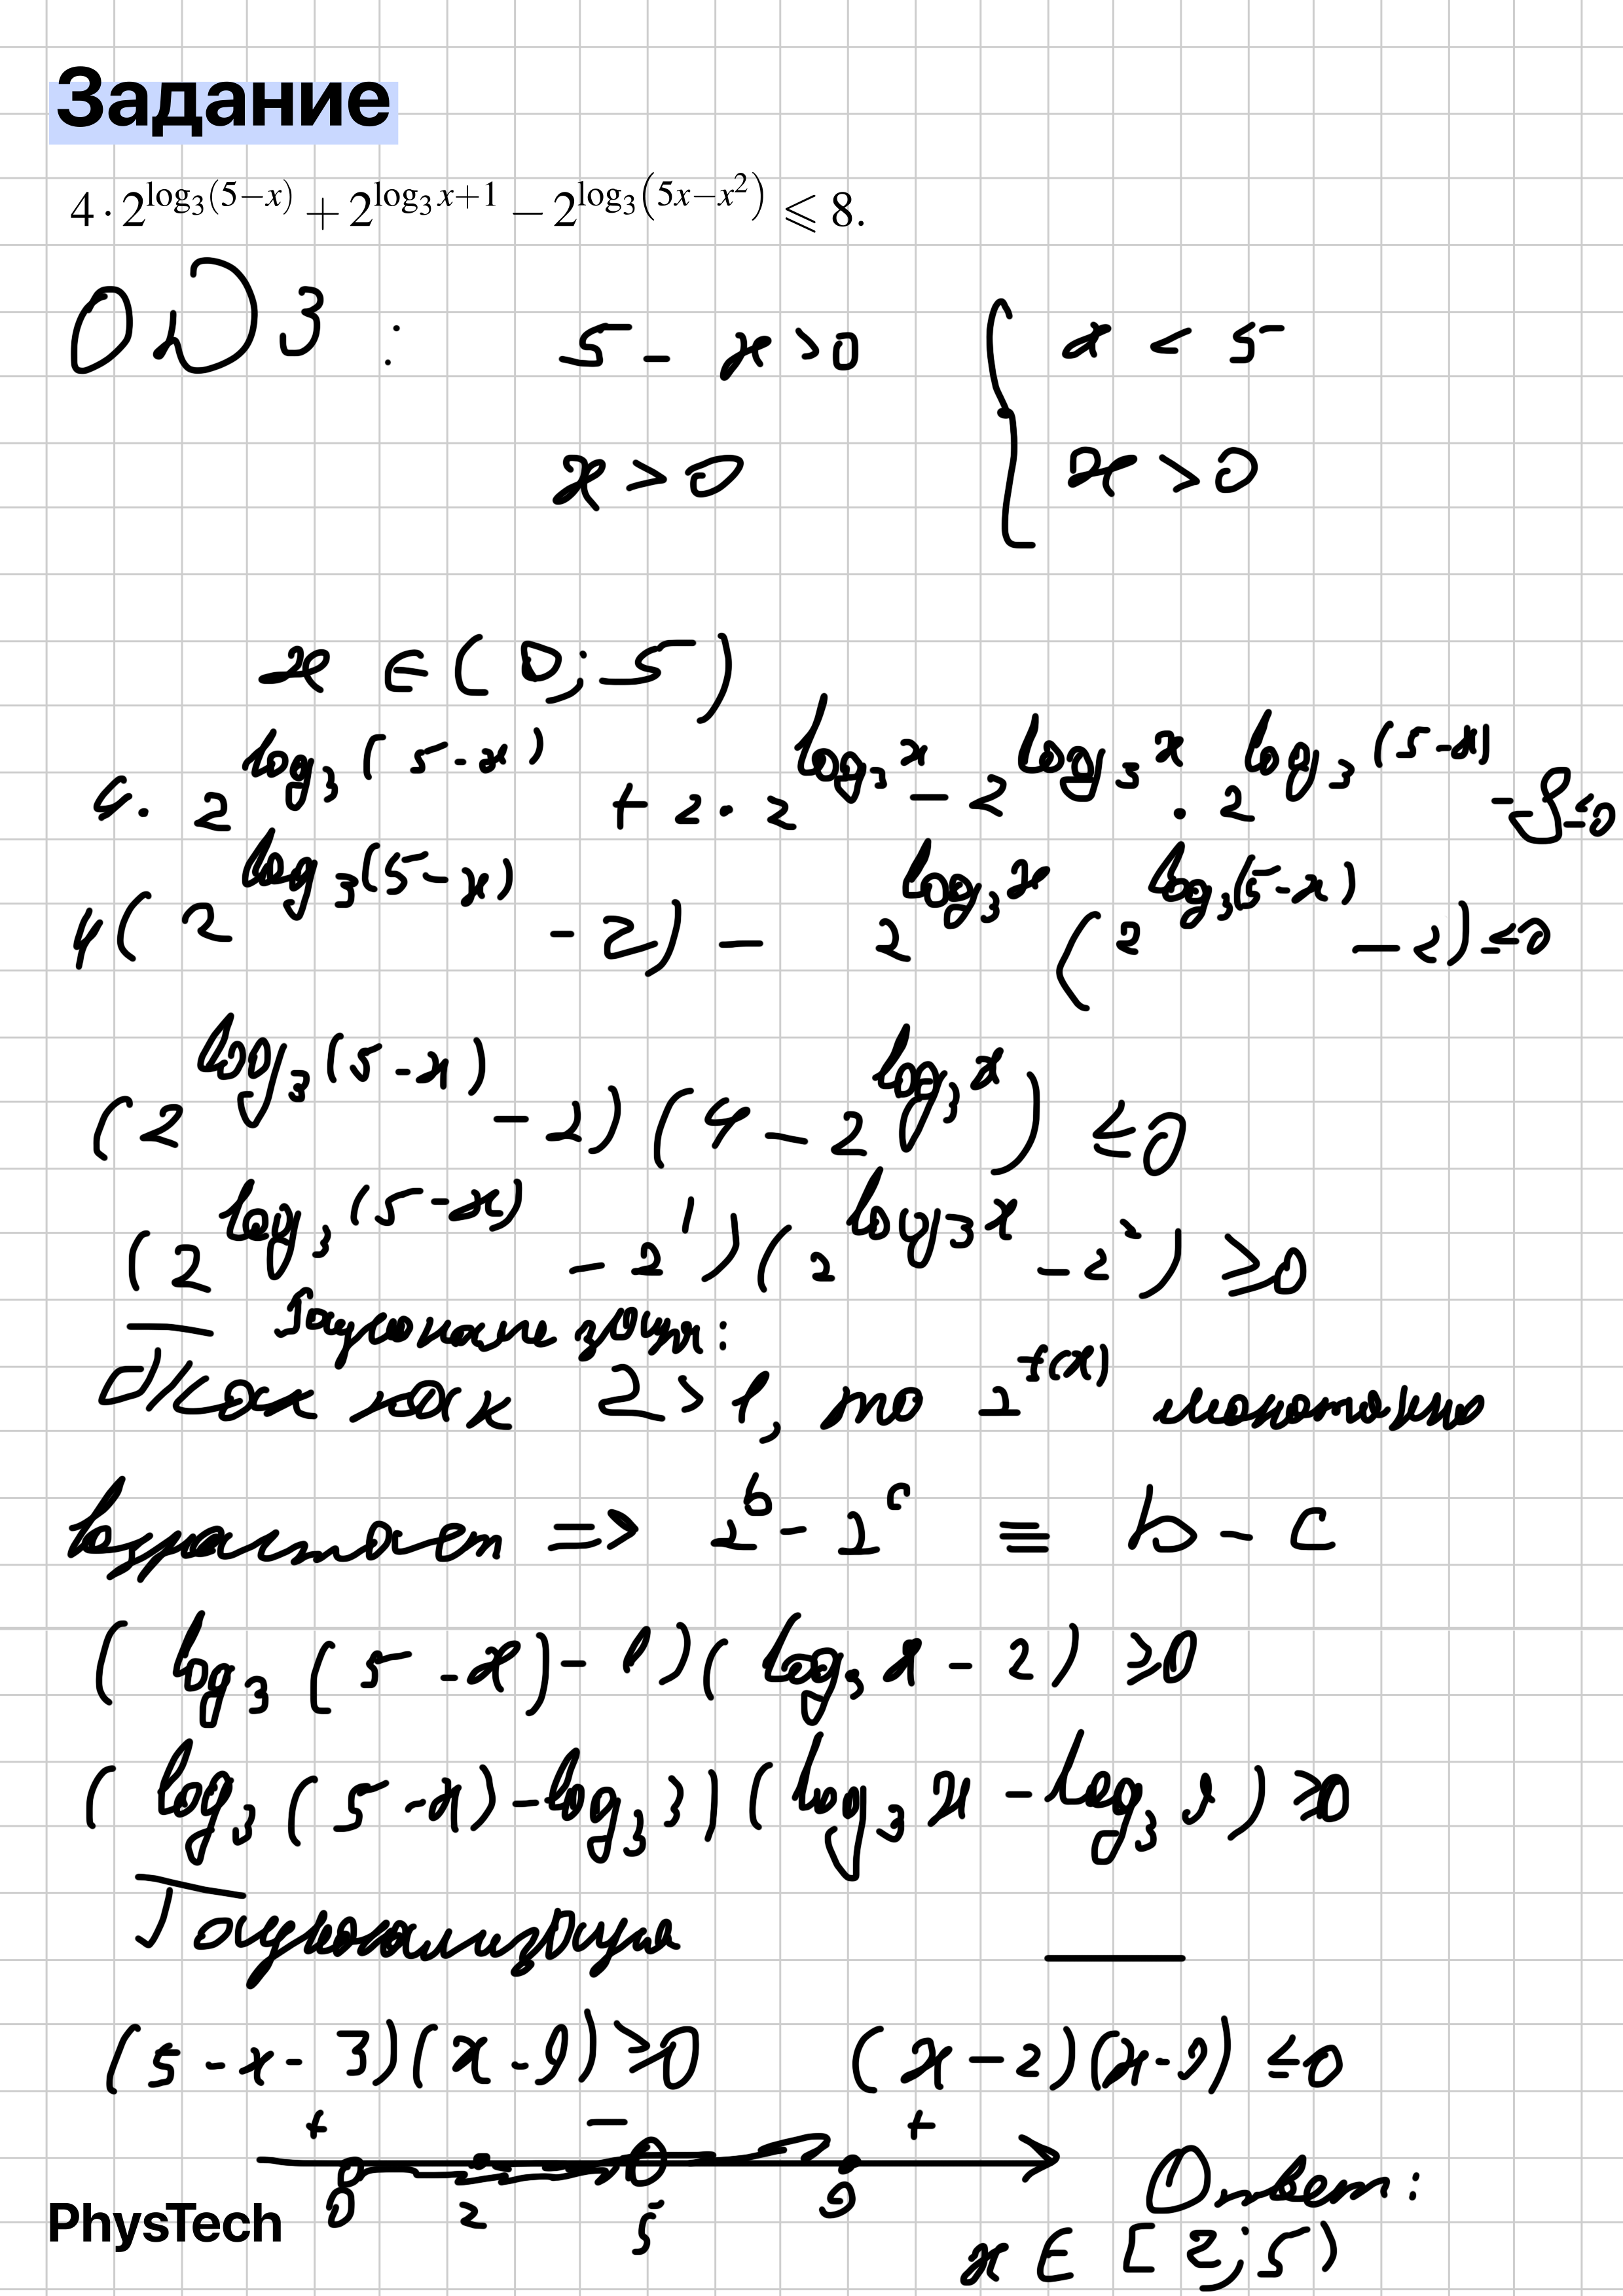 Задание
4 · 2^{log_3(5−x)} + 2^{log_3 x+1} − 2^{log_3(5x−x^2)} ⩽ 8.
ОДЗ : 5 − x > 0 { x < 5
x > 0 x > 0
x ∈ (0; 5)
4 · 2^{log_3(5−x)} + 2 · 2^{log_3 x} − 2^{log_3 x} · 2^{log_3(5−x)} − 8 ≤ 0
4(2^{log_3(5−x)} − 2) − 2^{log_3 x}(2^{log_3(5−x)} − 2) ≤ 0
(2^{log_3(5−x)} − 2)(4 − 2^{log_3 x}) ≤ 0
(2^{log_3(5−x)} − 2^1)(2^{log_3 x} − 2^2) ≥ 0
Так как 2 > 1, то 2^{f(x)} монотонно
возрастает => 2^b − 2^c ≡ b − c
(log_3(5−x) − 1)(log_3 x − 2) ≥ 0
(log_3(5−x) − log_3 3)(log_3 x − log_3 9) ≥ 0
Рационализация
(5 − x − 3)(x − 9) ≥ 0 (x − 2)(x − 9) ≤ 0
+ − +
0 2 5 9
Ответ:
x ∈ [2; 5)
PhysTech